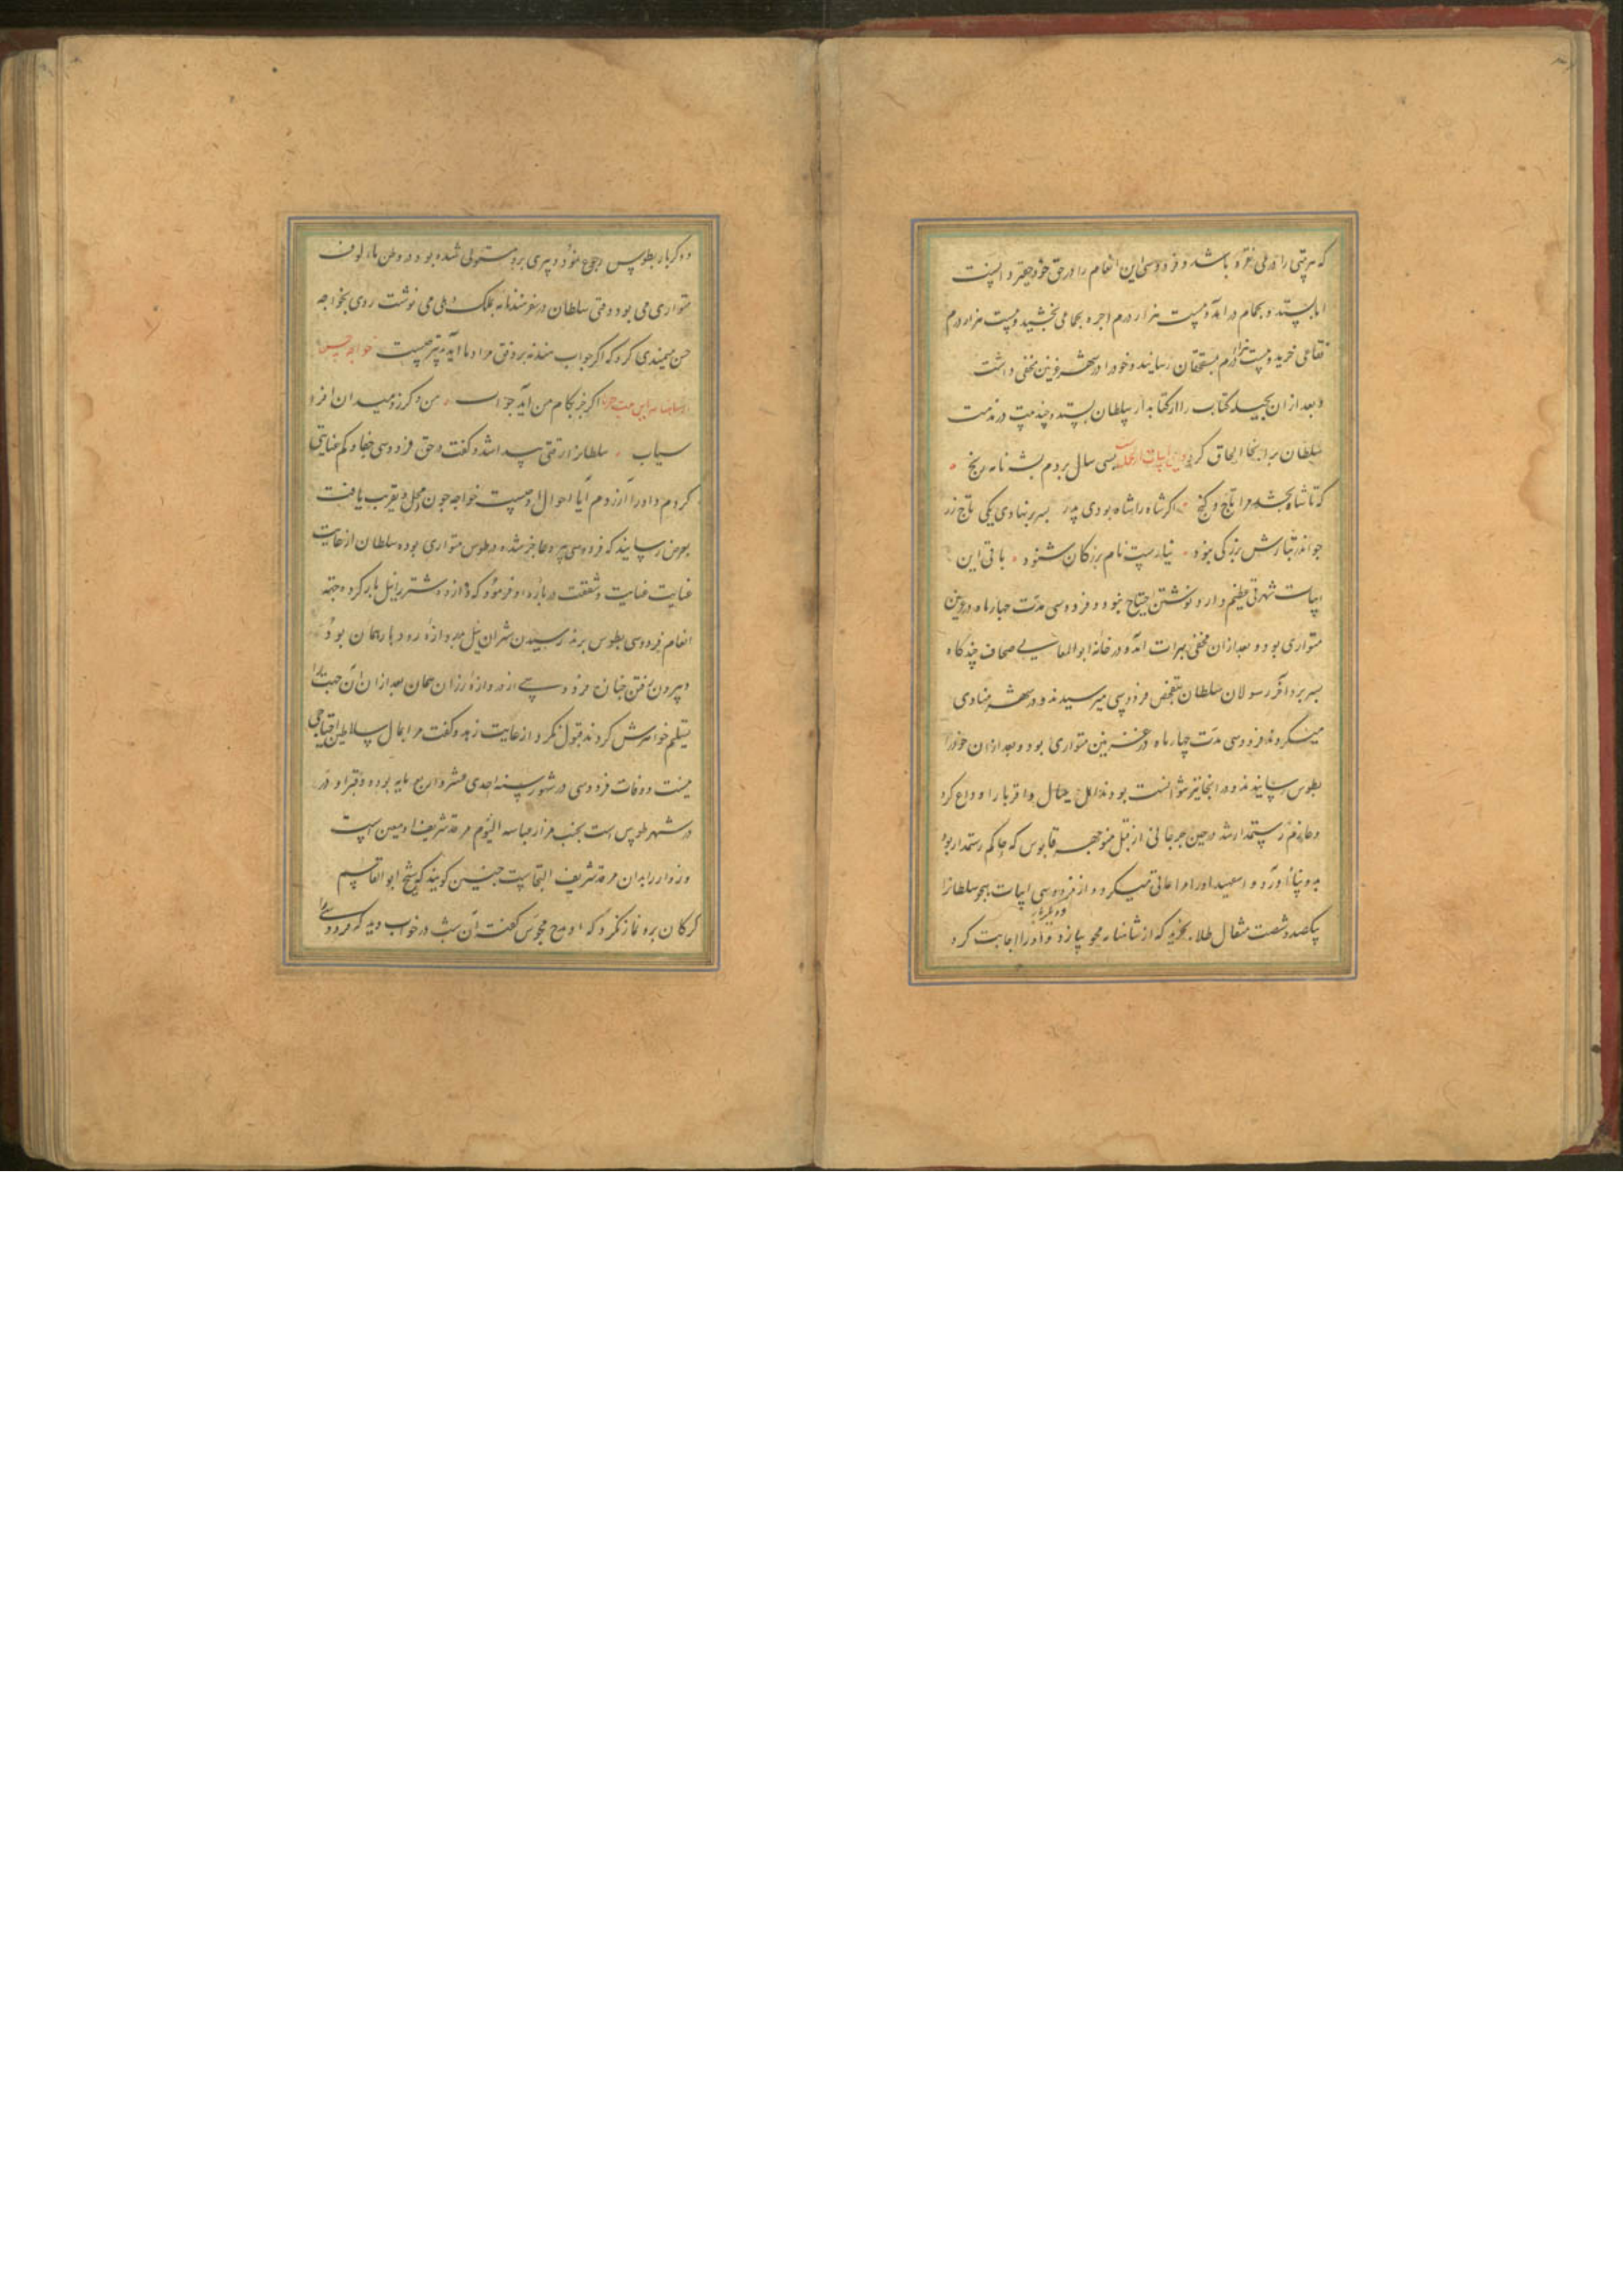 که هر بیتی را درمی نقره باشد و فردوسی این انعام را در حق خود حقیر دانست
اما بستد و بحمام درآمد و بیست هزار درم اجره بحمامی بخشید و بیست هزار درم
فقاعی خرید و بیست هزار درم بمستحقان رسانید و خود را در شهر غزنین مخفی داشت
و بعد از آن بحیله کتاب را از کتابدار سلطان بستد و چند بیت در مذمت
سلطان بدانجا الحاق کرد و این ابیات از آنجمله بسی سال بردم بشهنامه رنج
که تا شاه بخشد مرا تاج و گنج اگر شاه را شاه بودی پدر بسر بر نهادی یکی تاج زر
چو اندر تبارش بزرگی نبود نیارست نام بزرگان شنود باقی این
ابیات شهرتی عظیم دارد نوشتن احتیاج نبود و فردوسی مدت چهار ماه در غزنین
متواری بود و بعد از آن مخفی بهرات آمده در خانه ابوالمعالی صحاف چندگاه
بسر برد آخر رسولان سلطان بتفحص فردوسی میرسیدند و در شهر منادی
میکردند فردوسی مدت چهار ماه در غزنین متواری بود و بعد از آن خود را
بطوس رسانیدند و در آنجا نیز نتوانست بودن اهل و عیال و اقربا را وداع کرد
و عازم رستمدار شد در حین جرجانی از قبل منوچهر قابوس که حاکم رستمدار بود
بدو پناه آورد و اسعید او را مراعاتی میکرد و از فردوسی ابیات هجو سلطان را
بیکصد و شصت مثقال طلا بخرید که از شاهنامه محو سازد و او را اجابت کرد
و دیگر بار بطوس رجوع نمود و پیری برو مستولی شده بود و در وطن مألوف
متواری می بود وقتی سلطان در سفر هند نامه بملک دهلی می نوشت روی بخواجه
حسن میمندی کرد که اگر جواب هند نه بر وفق مراد ما آید تدبیر چیست خواجه حسن
از شاهنامه این بیت خواند اگر جز بکام من آید جواب من و گرز و میدان و افرا
سیاب سلطان را رقتی پیدا شد و گفت در حق فردوسی جفا و کم عنایتی
کردم و او را آزردم آیا احوال او چیست خواجه چون محل تقریب یافت
بعرض رسانید که فردوسی پیر و عاجز شده در طوس متواری بوده سلطان از غایت
عنایت و شفقت درباره او فرمود که دوازده شتر را نیل بار کرده جهة
انعام فردوسی بطوس برند رسیدن شتران نیل بدروازه رودبار همان بود
و بیرون رفتن جنازه فردوسی از دروازه رزان همان بعد از آن آن جهات را
تسلیم خواهرش کردند قبول نکرد از غایت زهد و گفت مرا بمال سلاطین احتیاجی
نیست و وفات فردوسی در شهور سنه احدی عشر و اربع مایه بوده و قبر او در
در شهر طوس است بجنب مزار عباسیه الیوم مرقد شریف او معین است
و زوار را بدان مرقد شریف التجاست چنین گویند که شیخ ابوالقاسم
کرکان بر او نماز نکرد که او مدح مجوس گفت آن شب در خواب دید که فردوسی را